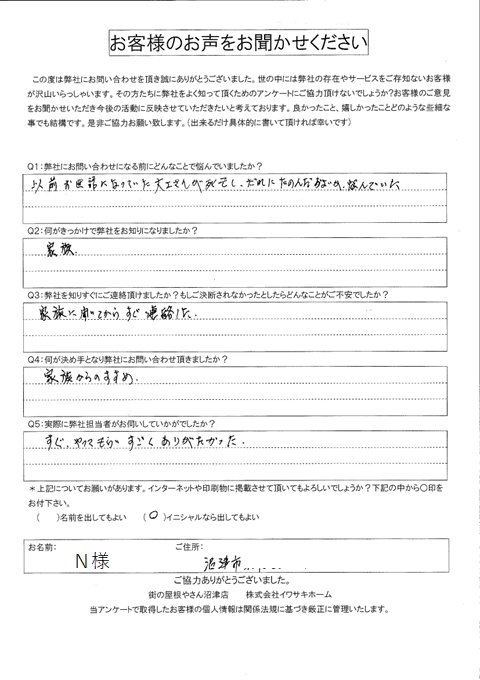 お客様のお声をお聞かせください
この度は弊社にお問い合わせを頂き誠にありがとうございました。世の中には弊社の存在やサービスをご存知ないお客様
が沢山いらっしゃいます。その方たちに弊社をよく知って頂くためのアンケートにご協力頂けないでしょうか?お客様のご意見
をお聞かせいただき今後の活動に反映させていただきたいと考えております。良かったこと、嬉しかったことどのような些細な
事でも結構です。是非ご協力お願い致します。(出来るだけ具体的に書いて頂ければ幸いです)
Q1:弊社にお問い合わせになる前にどんなことで悩んでいましたか?
以前お世話になっていた大工さんが死亡し、だれにたのんだらよいか、なやんでいた
Q2:何がきっかけで弊社をお知りになりましたか?
家族.
Q3:弊社を知りすぐにご連絡頂けましたか?もしご決断されなかったとしたらどんなことがご不安でしたか?
家族に聞いてからすぐ連絡した.
Q4:何が決め手となり弊社にお問い合わせ頂きましたか?
家族からのすすめ.
Q5:実際に弊社担当者がお伺いしていかがでしたか?
すぐ、やってもらいすごくありがたかった.
*上記についてお願いがあります。インターネットや印刷物に掲載させて頂いてもよろしいでしょうか?下記の中から○印を
お付下さい。
( )名前を出してもよい (○)イニシャルなら出してもよい
お名前: ご住所:
N様 沼津市
ご協力ありがとうございました。
街の屋根やさん沼津店 株式会社イワサキホーム
当アンケートで取得したお客様の個人情報は関係法規に基づき厳正に管理いたします。